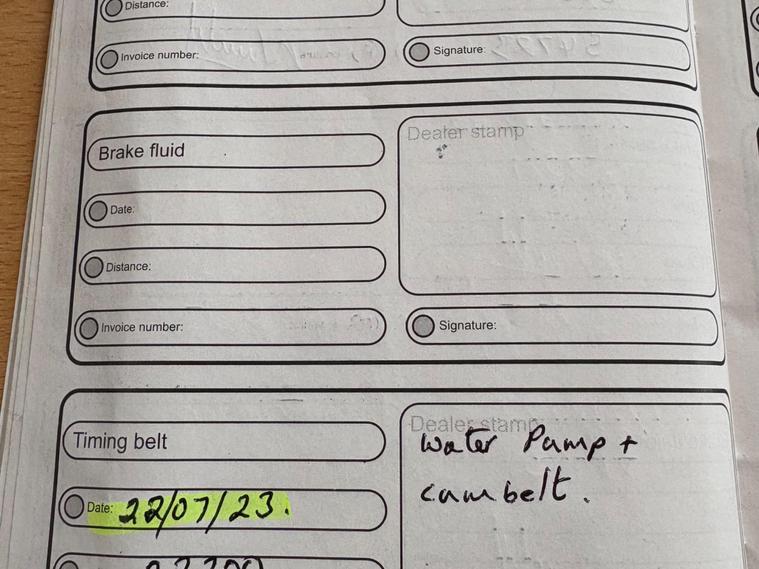 Distance:
Invoice number:
Signature:
Brake fluid
Dealer stamp
Date:
Distance:
Invoice number:
Signature:
Timing belt
Dealer stamp
Water Pump +
cambelt.
Date: 22/07/23.